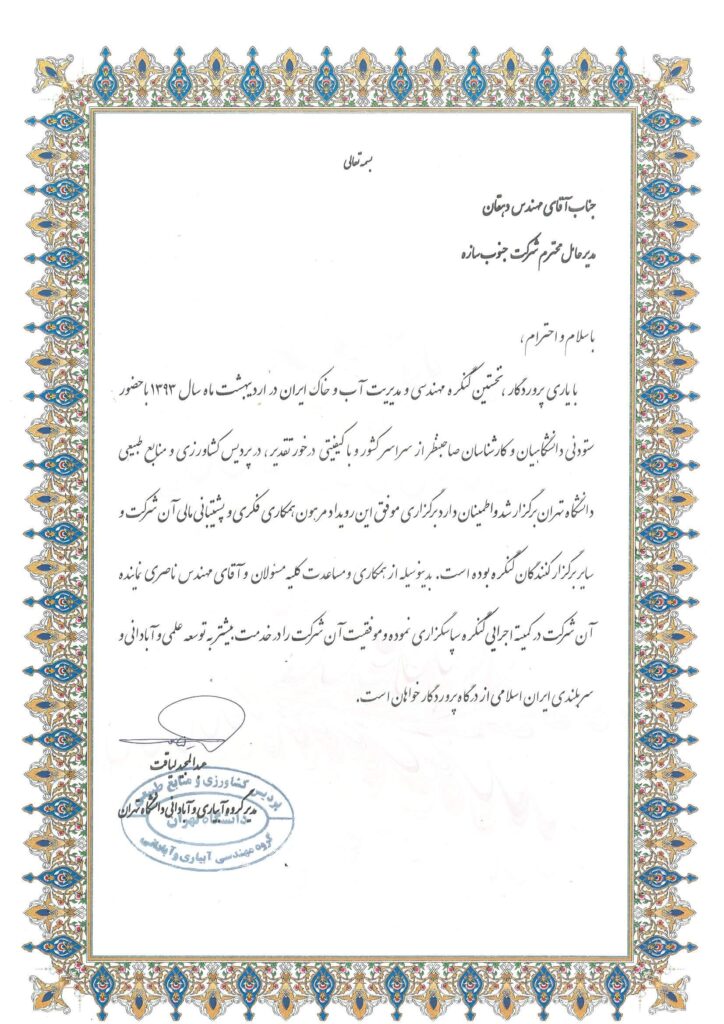 بسمه تعالی
جناب آقای مهندس دهقان
مدیرعامل محترم شرکت جنوب سازه
باسلام و احترام،
با یاری پروردگار، نخستین کنگره مهندسی و مدیریت آب و خاک ایران در اردیبهشت ماه سال ۱۳۹۳ با حضور
ستودنی دانشگاهیان و کارشناسان صاحبنظر از سراسر کشور و با کیفیتی درخور تقدیر، در پردیس کشاورزی و منابع طبیعی
دانشگاه تهران برگزار شد و اطمینان دارد برگزاری موفق این رویداد مرهون همکاری فکری و پشتیبانی مالی آن شرکت و
سایر برگزارکنندگان کنگره بوده است. بدینوسیله از همکاری و مساعدت کلیه مسئولان و آقای مهندس ناصری نماینده
آن شرکت در کمیته اجرایی کنگره سپاسگزاری نموده و موفقیت آن شرکت را در خدمت بیشتر به توسعه علمی و آبادانی و
سربلندی ایران اسلامی از درگاه پروردگار خواهان است.
عبدالمجید لیاقت
مدیر گروه آبیاری و آبادانی دانشگاه تهران
پردیس کشاورزی و منابع طبیعی
دانشگاه تهران
گروه مهندسی آبیاری و آبادانی